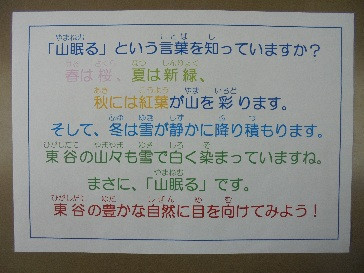 「山眠る」という言葉を知っていますか？
春は桜、夏は新緑、
秋には紅葉が山を彩ります。
そして、冬は雪が静かに降り積もります。
東谷の山々も雪で白く染まっていますね。
まさに、「山眠る」です。
東谷の豊かな自然に目を向けてみよう！